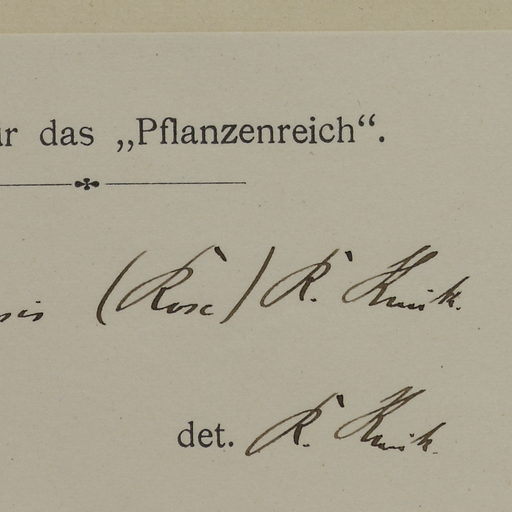 ür das „Pflanzenreich“.
sis (Rose) R. Knuth.
det. R. Knuth.